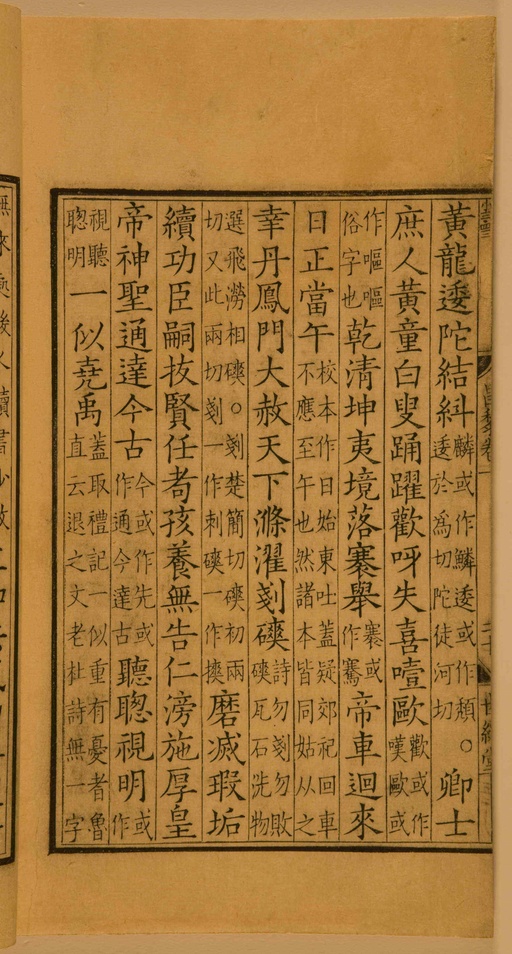 黃龍逶陀結糾麟或作鱗逶或作頹。逶於為切陀徒河切卿士
庶人黃童白叟踊躍歡呀失喜噎歐歡或作嘆歐或
作嘔嘔俗字也乾清坤夷境落褰舉褰或作騫帝車迴來
日正當午校本作日始東吐蓋疑郊祀回車不應至午也然諸本皆同姑从之
幸丹鳳門大赦天下滌濯剗磢詩勿剗勿敗磢瓦石洗物
選飛澇相磢。剗楚簡切磢初兩切又此兩切剗一作刺磢一作摤磨滅瑕垢
續功臣嗣拔賢任耇孩養無告仁滂施厚皇
帝神聖通達今古今或作先或作通今達古聽聰視明或作
視聽聰明一似堯禹蓋取禮記一似重有憂者魯直云退之文老杜詩無一字